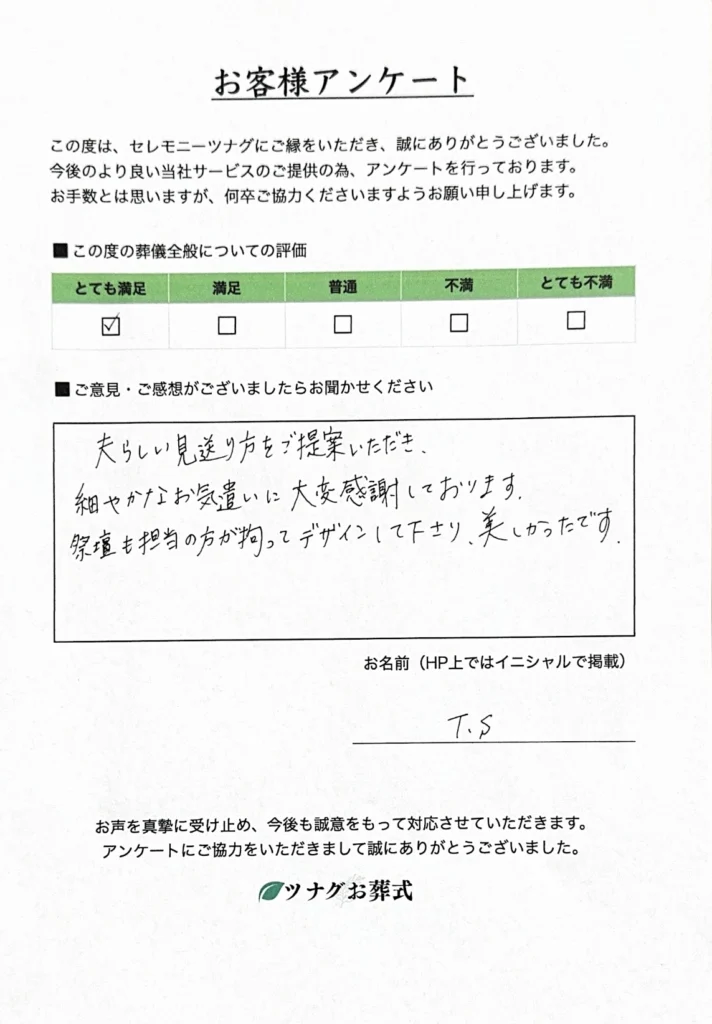 お客様アンケート
この度は、セレモニーツナグにご縁をいただき、誠にありがとうございました。
今後のより良い当社サービスのご提供の為、アンケートを行っております。
お手数とは思いますが、何卒ご協力くださいますようお願い申し上げます。
■ この度の葬儀全般についての評価
とても満足 満足 普通 不満 とても不満
☑ □ □ □ □
■ ご意見・ご感想がございましたらお聞かせください
夫らしい見送り方をご提案いただき、
細やかなお気遣いに大変感謝しております。
祭壇も担当の方が拘ってデザインして下さり、美しかったです。
お名前（HP上ではイニシャルで掲載）
T.S
お声を真摯に受け止め、今後も誠意をもって対応させていただきます。
アンケートにご協力をいただきまして誠にありがとうございました。
ツナグお葬式